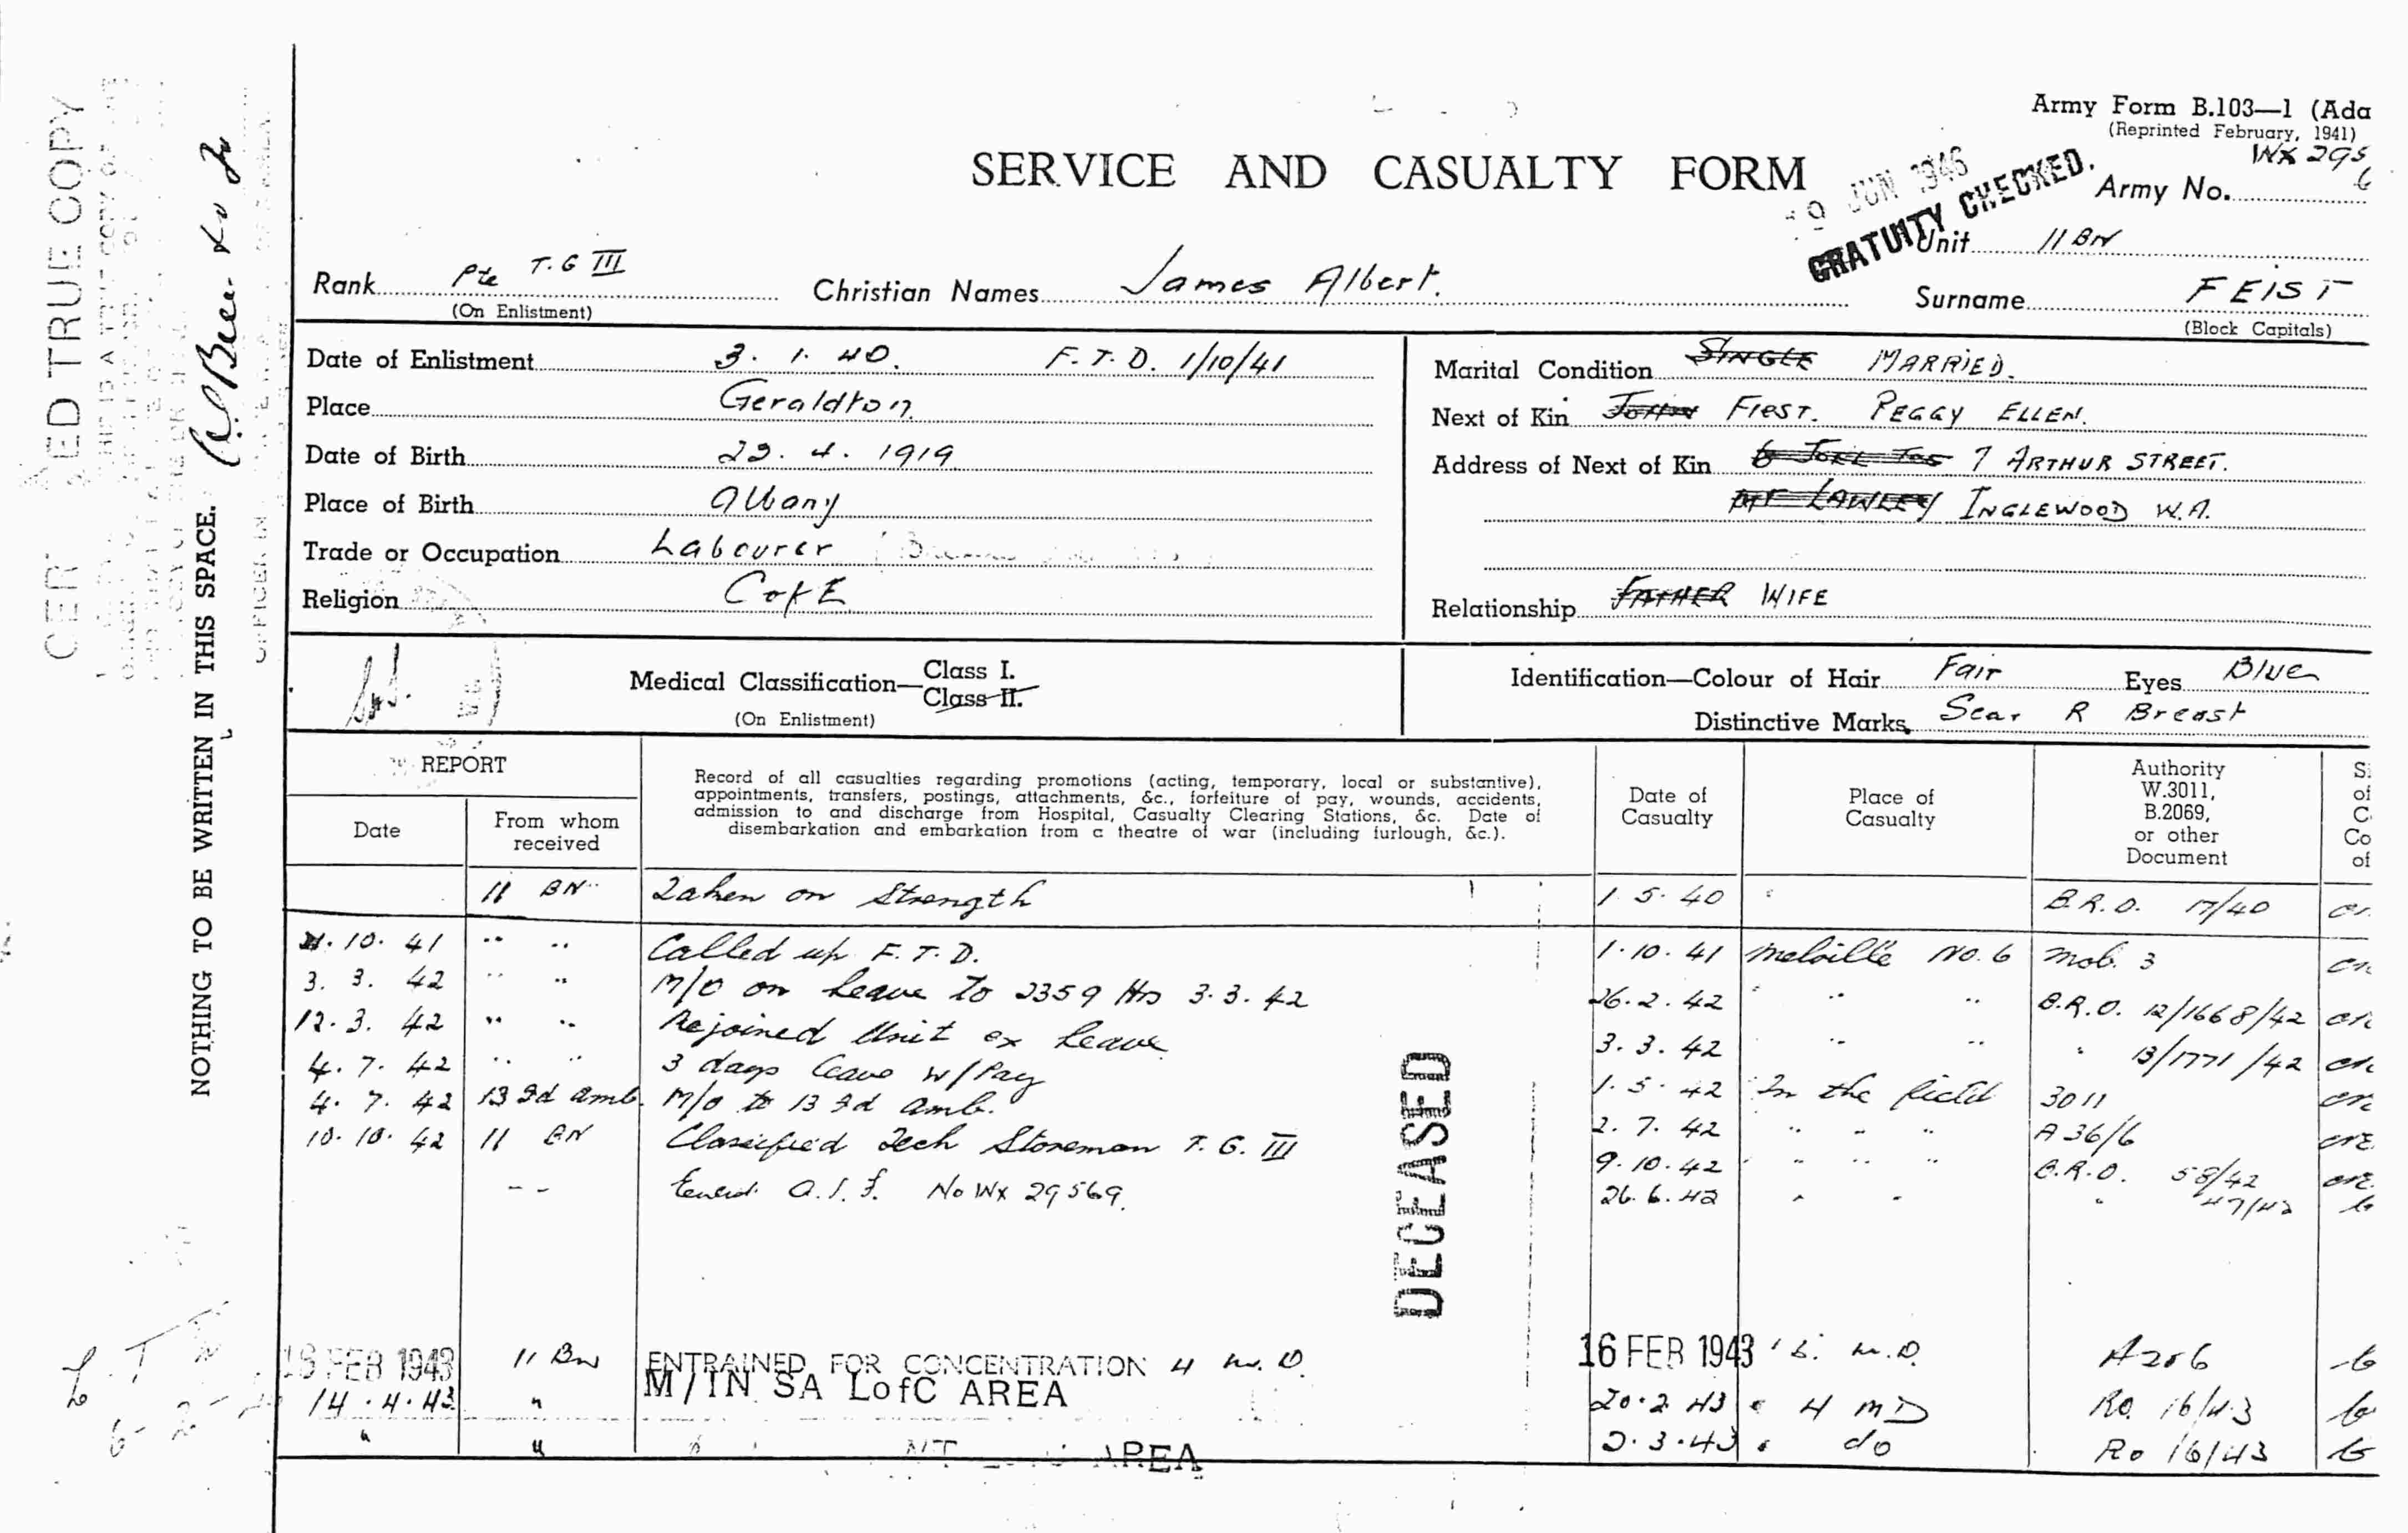 Army Form B.103—1 (Ada
(Reprinted February, 1941)
WX 295
6
SERVICE AND CASUALTY FORM
JUN 1946
GRATUITY CHECKED.
Army No.
Unit 11 BN
Rank Pte T.G III
(On Enlistment)
Christian Names James Albert.
Surname FEIST
(Block Capitals)
Date of Enlistment 3. 1. 40. F.T.D. 1/10/41
Place Geraldton
Date of Birth 22. 4. 1919
Place of Birth Albany
Trade or Occupation Labourer
Religion C of E
Marital Condition SINGLE MARRIED.
Next of Kin JOHN FIEST. PEGGY ELLEN.
Address of Next of Kin 7 ARTHUR STREET.
MT LAWLEY INGLEWOOD W.A.
Relationship FATHER WIFE
Medical Classification—Class I.
Class II.
(On Enlistment)
Identification—Colour of Hair Fair Eyes Blue
Distinctive Marks Scar R Breast
REPORT
Date
From whom received
Record of all casualties regarding promotions (acting, temporary, local or substantive),
appointments, transfers, postings, attachments, &c., forfeiture of pay, wounds, accidents,
admission to and discharge from Hospital, Casualty Clearing Stations, &c. Date of
disembarkation and embarkation from a theatre of war (including furlough, &c.).
Date of Casualty
Place of Casualty
Authority
W.3011,
B.2069,
or other
Document
S
of
C
Co
of
11 BN Taken on Strength 1 5. 40 B.R.O. 17/40
10. 41 " " Called up F.T.D. 1.10.41 Melville No. 6 Mob. 3
3. 3. 42 " " M/O on Leave to 2359 Hrs 3.3.42 26.2.42 " " " B.R.O. 12/1668/42
12.3. 42 " " Rejoined Unit ex Leave 3. 3. 42 " " " 13/1771/42
4. 7. 42 " " 3 days Leave w/Pay 1. 5. 42 In the field 3011
4. 7. 42 13 Fd Amb. M/O to 13 Fd Amb. 2. 7. 42 " " " A 36/6
10. 10. 42 11 BN Classified Tech Storeman T.G. III 9.10.42 " " " B.R.O. 58/42
" " A.I.F. No WX 29569. 26.6.42 " " " 47/42
DECEASED
FEB 1943 11 Bn ENTRAINED FOR CONCENTRATION 4 M.D. 16 FEB 1943 M.D. A206
14.4.43 " M/IN SA LofC AREA 20.2.43 " 4 MD Ro. 16/43
" " AREA 2.3.43 " do Ro 16/43
NOTHING TO BE WRITTEN IN THIS SPACE.
CER ED TRUE COPY